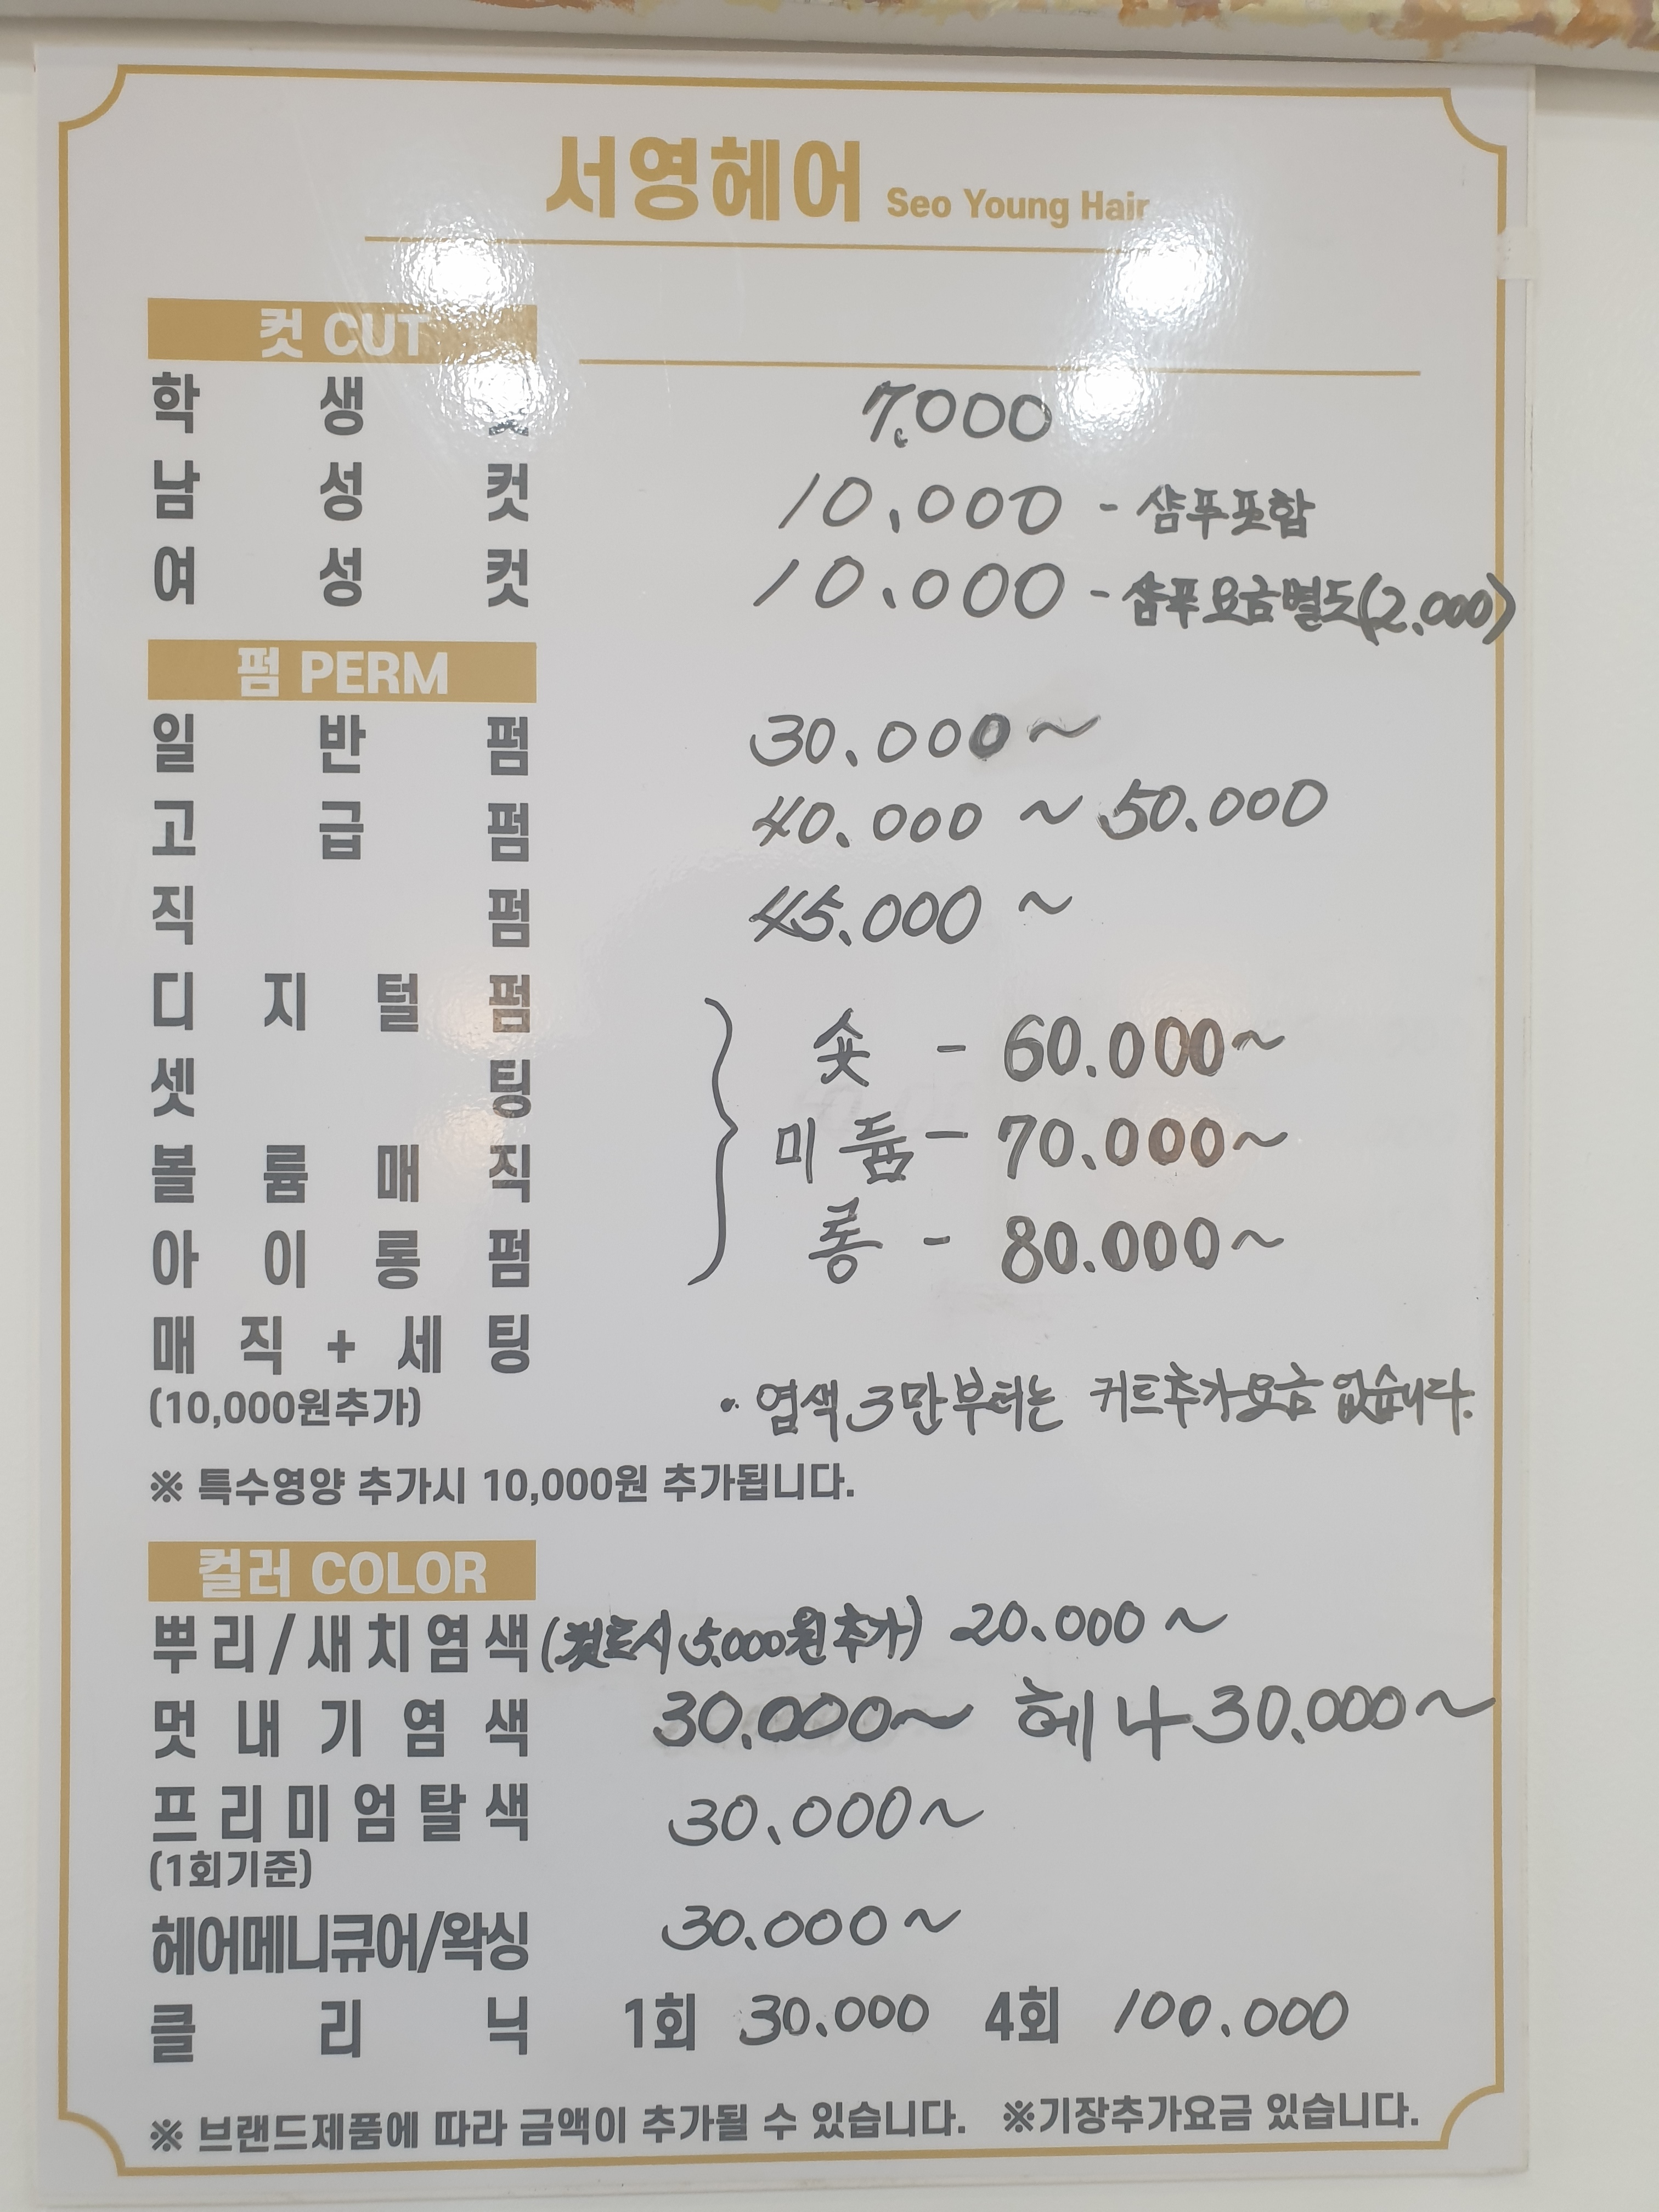 서영헤어 Seo Young Hair
컷 CUT
학 생 컷 7,000
남 성 컷 10.000 - 샴푸포함
여 성 컷 10.000 - 샴푸요금별도(2.000)
펌 PERM
일 반 펌 30.000~
고 급 펌 40.000 ~ 50.000
직 펌 45.000 ~
디 지 털 펌
숏 - 60.000~
셋 팅
미듐 - 70.000~
볼 륨 매 직
아 이 롱 펌
롱 - 80.000~
매 직 + 세 팅
(10,000원추가)
• 염색 3만부터는 커트추가요금 없습니다.
※ 특수영양 추가시 10,000원 추가됩니다.
컬러 COLOR
뿌리/새치염색 (컷트시 5.000원 추가) 20.000 ~
멋내기염색 30.000~ 헤나 30.000~
프리미엄탈색 30.000~
(1회기준)
헤어메니큐어/왁싱 30.000~
클 리 닉 1회 30.000 4회 100.000
※ 브랜드제품에 따라 금액이 추가될 수 있습니다. ※기장추가요금 있습니다.